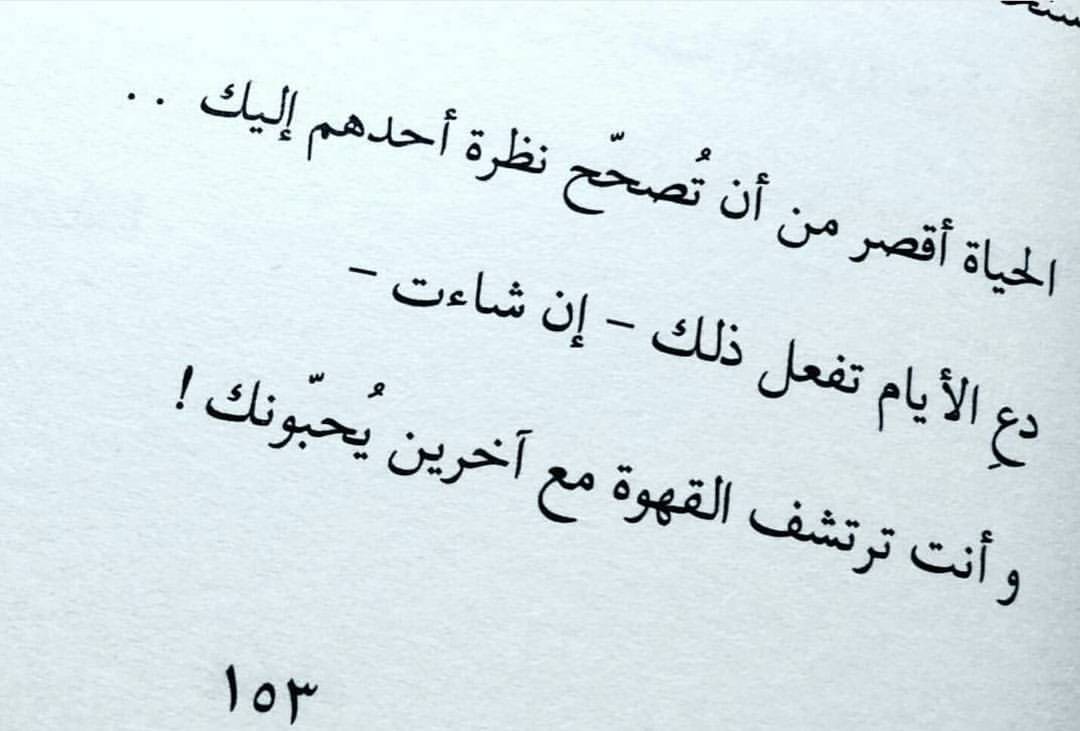 الحياة أقصر من أن تُصحّح نظرة أحدهم إليك ..
دعِ الأيام تفعل ذلك – إن شاءت –
و أنت ترتشف القهوة مع آخرين يُحبّونك !
١٥٣